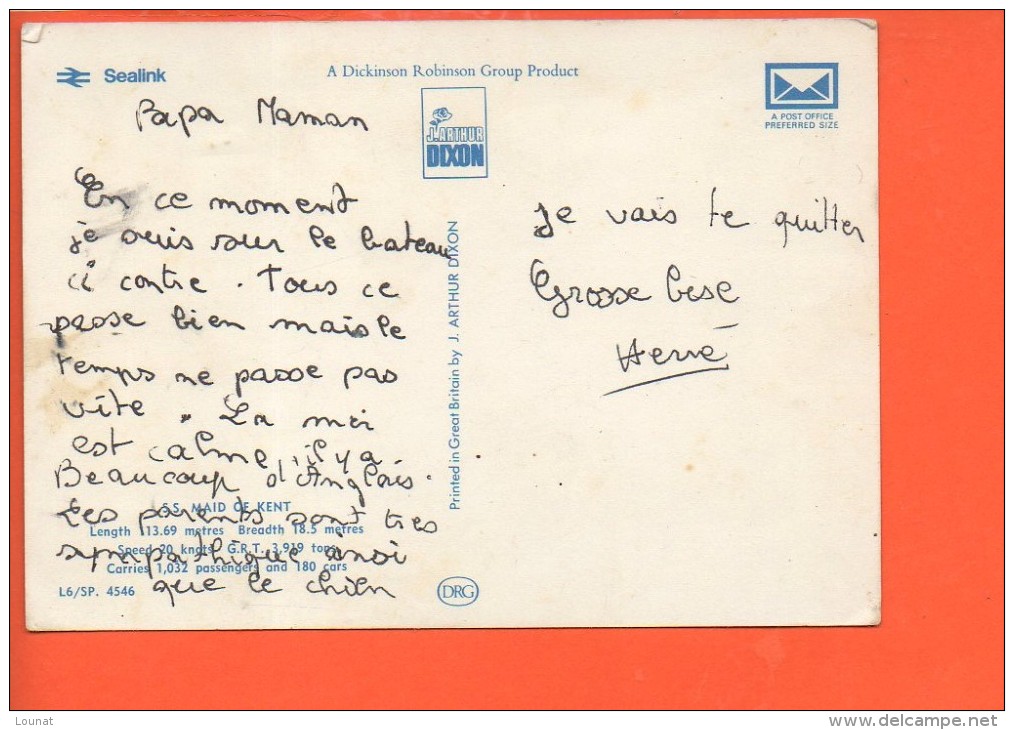 Sealink
A Dickinson Robinson Group Product
A POST OFFICE
PREFERRED SIZE
J. ARTHUR
DIXON
Papa Maman
En ce moment
je suis sur le bateau
ci contre. Tous ce
passe bien mais le
temps ne passe pas
vite. La mer
est calme, il y a
Beaucoup d'Anglais.
Les parents sont tres
sympathique ainsi
que le chien
Je vais te quitter
Grosse bise
Hervé
Printed in Great Britain by J. ARTHUR DIXON
S.S. MAID OF KENT
Length 113.69 metres Breadth 18.5 metres
Speed 20 knots G.R.T. 3,919 tons
Carries 1,032 passengers and 180 cars
L6/SP. 4546
DRG
Lounat
www.delcampe.net